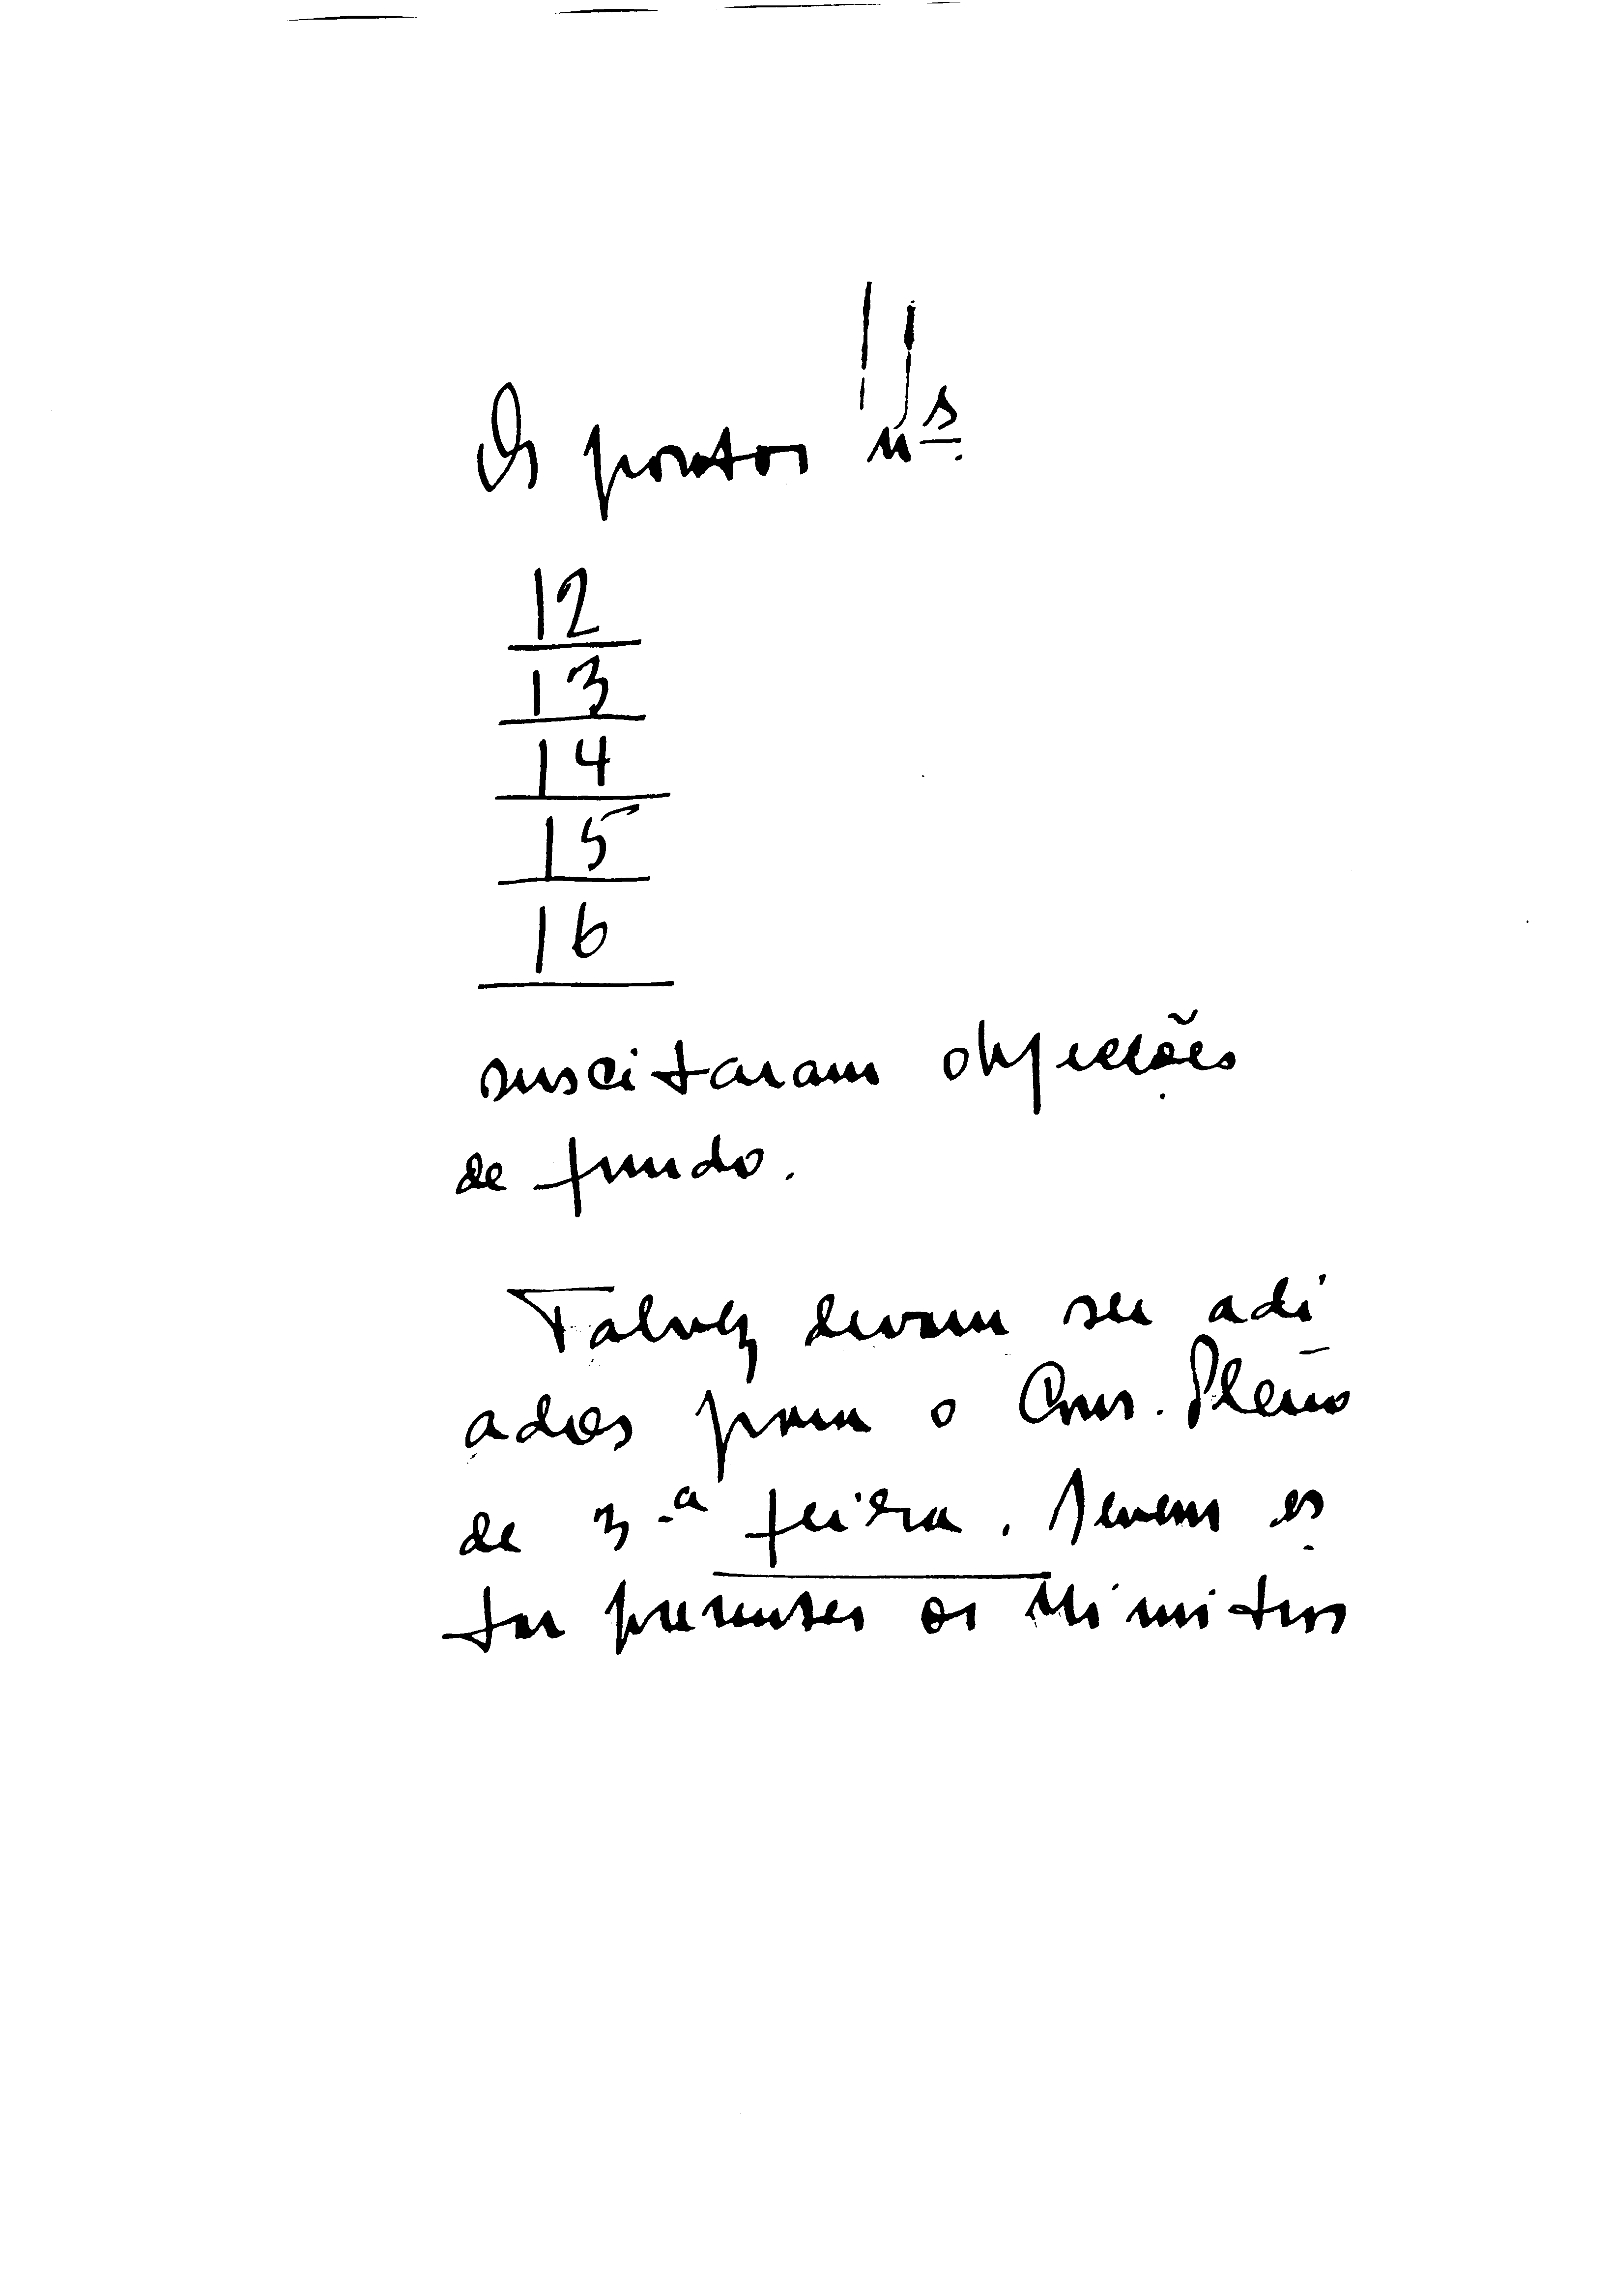 Os pontos nºs
12
13
14
15
16
suscitaram objecções
de fundo.
Talvez devam ser adi
ados para o Cons. Pleno
de 3.ª feira. Devem es
tar presentes os Ministros